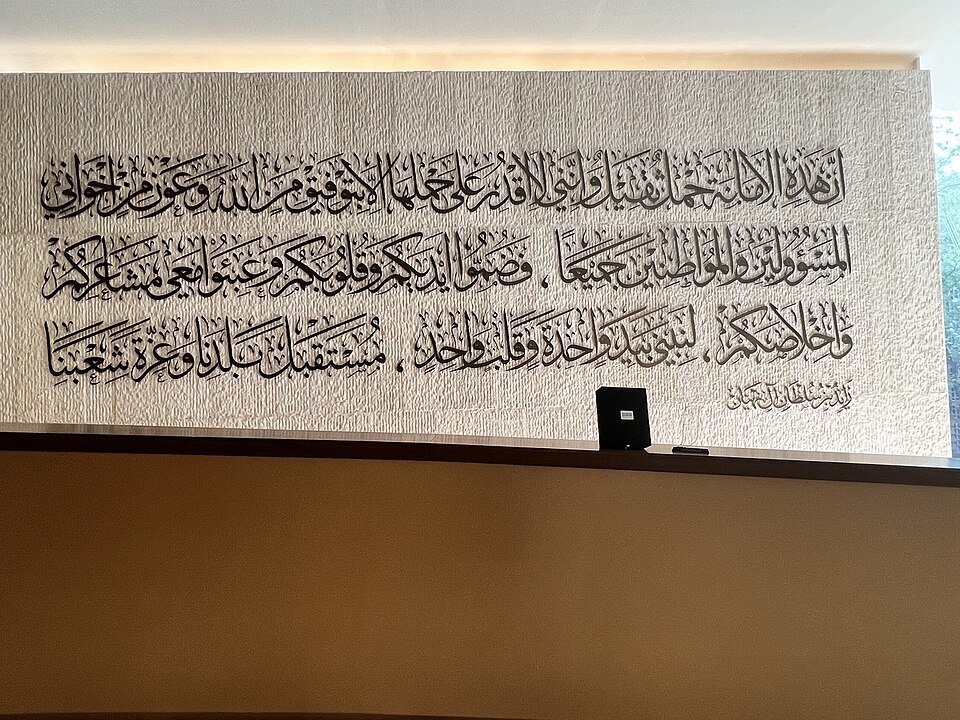 إنّ هَذِهِ الأمَانَةَ حِمْلٌ ثَقِيلٌ وَإنَّنِي لا أقْدِرُ عَلَى حَمْلِهَا إلا بِتَوْفِيقٍ مِنَ اللَّهِ وَعَوْنٍ مِنْ إخْوَانِي
المَسْؤُولِيْنَ وَالمُوَاطِنِيْنَ جَمِيْعَاً ، فَضُمُّوا أيْدِيَكُمْ وَقُلُوبَكُمْ وَعَبِّئوا مَعِي مَشَاعِرَكُمْ
وَإخْلَاصَكُمْ ، لِنَبْنِيَ بِيَدٍ وَاحِدَة وَقَلْبٍ وَاحِدٍ ، مُسْتَقْبَلَ بَلَدِنَا وَعِزَّةَ شَعْبِنَا
زايد بن سلطان آل نهيان